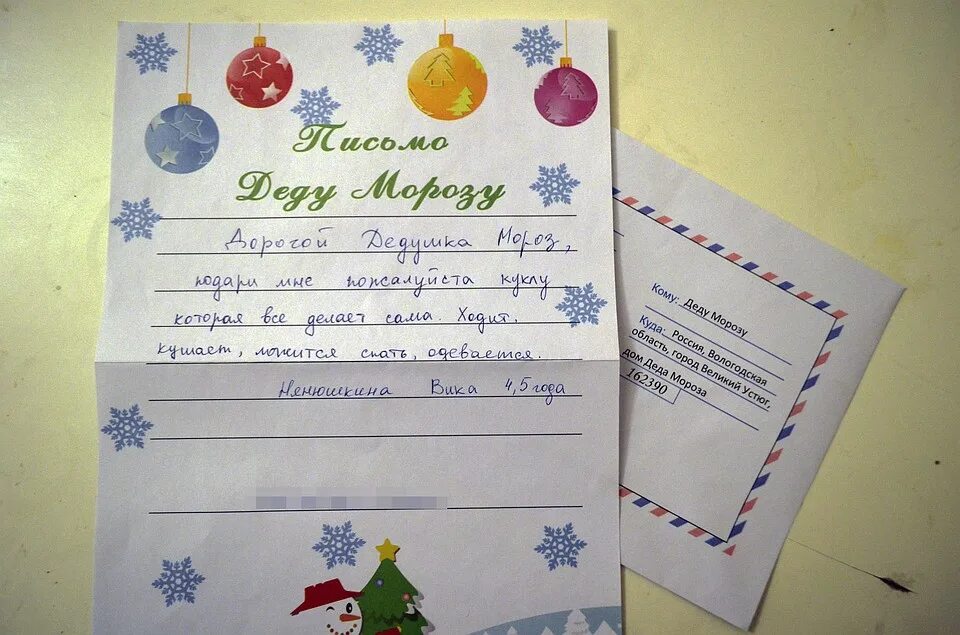 Письмо
Деду Морозу
Дорогой Дедушка Мороз,
подари мне пожалуйста куклу
которая все делает сама. Ходит,
кушает, ложится спать, одевается.
Ненюшкина Вика 4,5 года
Кому: Деду Морозу
Куда: Россия, Вологодская
область, город Великий Устюг,
дом Деда Мороза
162390